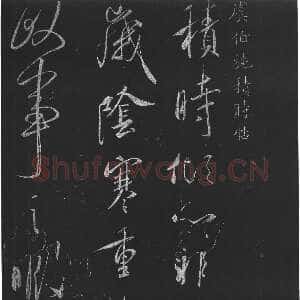 虞伯施積時帖
積時傾仰邪
歲陰寒重
此事之暇
Shufawang.CN